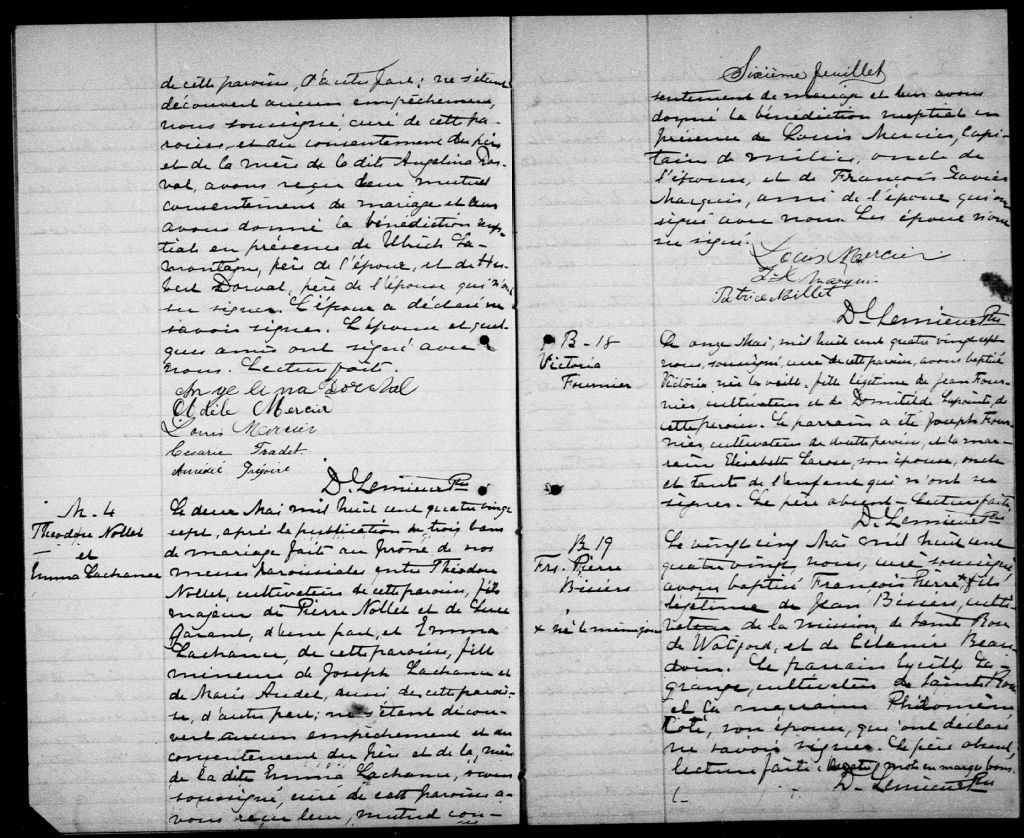 de cette paroisse, d'autre part; ne s'étant
découvert aucun empêchement,
nous soussigné, curé de cette pa-
roisse, et du consentement du père
et de la mère de la dite Angelina Dor-
val, avons reçu leur mutuel
consentement de mariage et leur
avons donné la bénédiction nup-
tiale en présence de Ulrich La-
montagne, père de l'époux, et de
Dorval, père de l'épouse qui n'ont
su signer. L'époux a déclaré ne
savoir signer. L'épouse et quel-
ques amis ont signé avec
nous. Lecture faite.
Angelina Dorval
Adèle Mercier
Louis Mercier
Césarie Fradet
Amédé
D. Lemieux Ptre
M. 4
Théodore Nollet
et
Emma Lachance
Le deux Mai mil huit cent quatre vingt
sept, après la publication de trois bans
de mariage fait au prône de nos
messes paroissiales entre Théodore
Nollet, cultivateur de cette paroisse, fils
majeur de Pierre Nollet et de Luce
Garant, d'une part, et Emma
Lachance, de cette paroisse, fille
mineure de Joseph Lachance et
de Marie Audet, aussi de cette parois-
se, d'autre part; ne s'étant décou-
vert aucun empêchement et du
consentement du père et de la mère
de la dite Emma Lachance, nous
soussigné, curé de cette paroisse a-
vons reçu leur mutuel con-
Sixième feuillet
sentement de mariage et leur avons
donné la bénédiction nuptiale en
présence de Louis Mercier, Capi-
taine de milice, oncle de
l'époux, et de François Xavier
Marquis, ami de l'épouse qui ont
signé avec nous. Les époux n'ont
su signé.
Louis Mercier
F. X. Marquis
Patrice Nollet
D. Lemieux Ptre
B-18
Victoria
Fournier
Le onze Mai, mil huit cent quatre vingt sept
nous, soussigné, curé de cette paroisse, avons baptisé
Victoria née la veille, fille légitime de Jean Four-
nier, cultivateur et de Domitilde Lapointe, de
cette paroisse. Le parrain a été Joseph Four-
nier, cultivateur de cette paroisse, et la mar-
raine Elisabeth Larose, son épouse, oncle
et tante de l'enfant qui n'ont su
signer. Le père absent - Lecture faite,
D. Lemieux Ptre
B 19
Frs. Pierre
Bisiers
x né le même jour
Le vingt cinq Mai mil huit cent
quatre vingt nous, curé soussigné
avons baptisé François Pierre x fils
légitime de Jean Bisiers, culti-
vateur de la mission de Sainte Rose
de Watford, et de Edamire Beau
doin. Le parrain La-
grange, cultivateur de Sainte Rose
et la marraine Philomène
Coté, son épouse, qui ont déclaré
ne savoir signer. Le père absent,
lecture faite mots en marge bons.
D. Lemieux Ptre